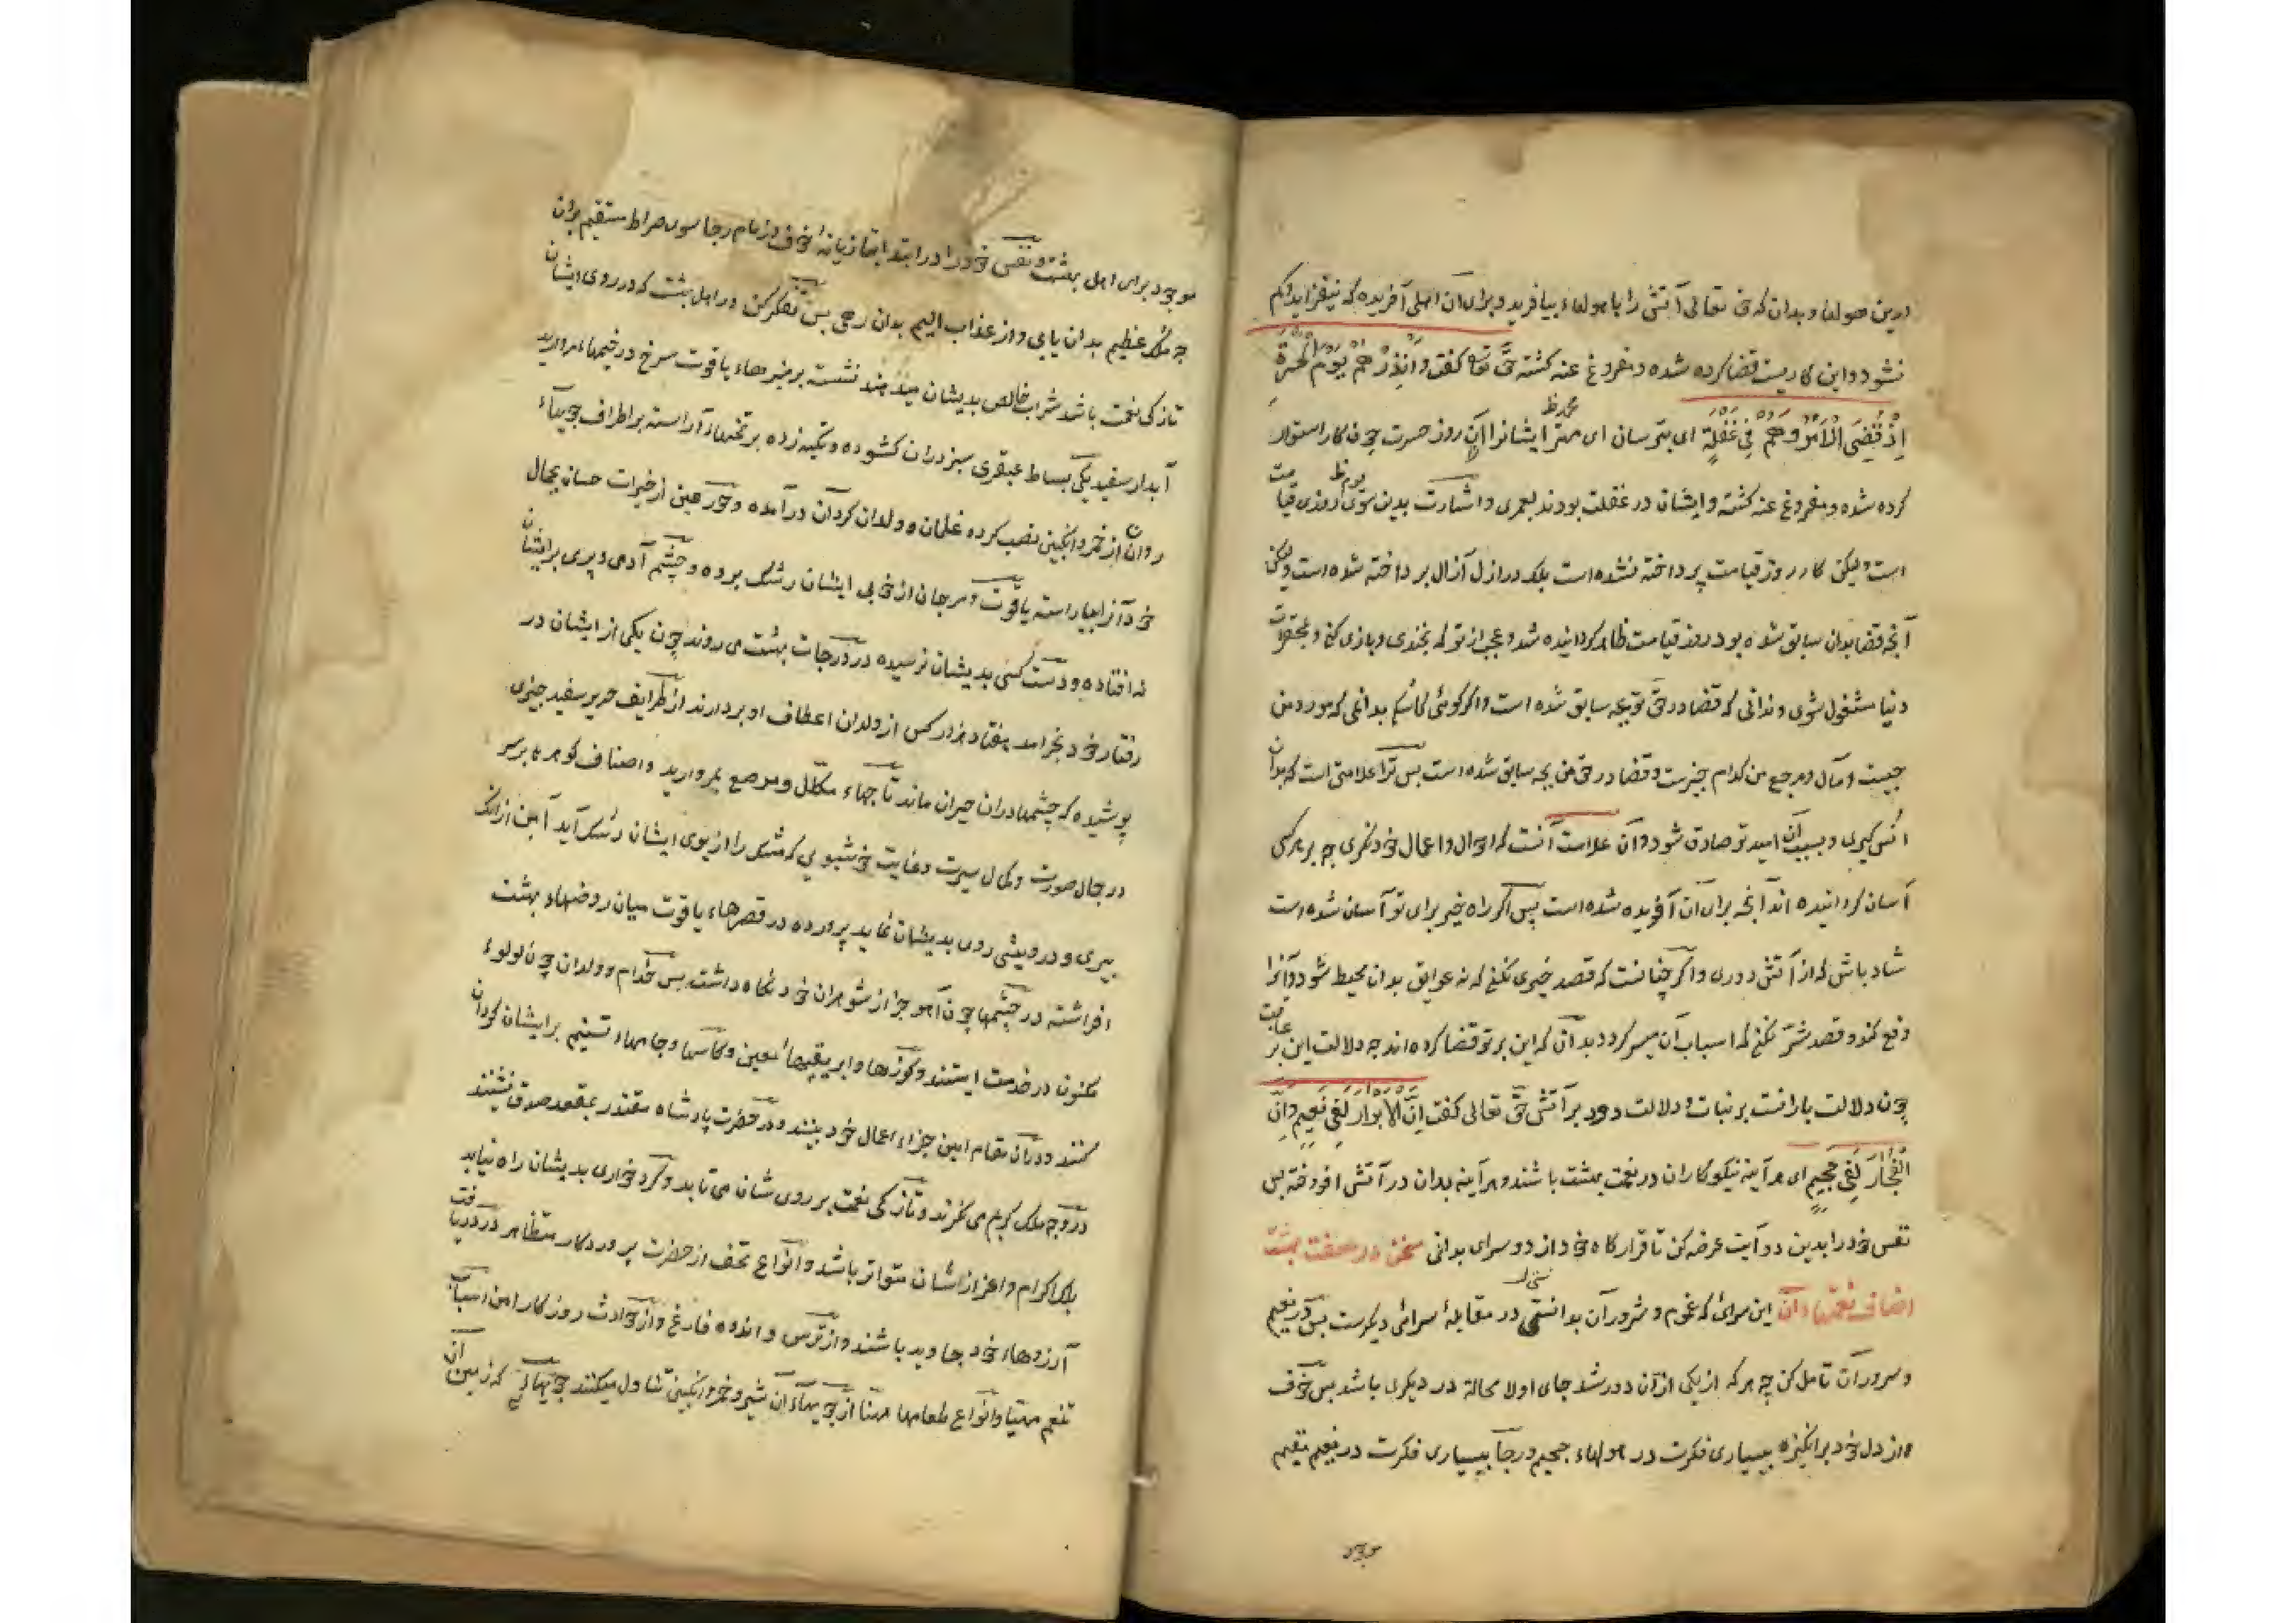 درین هولها و بدان که حق تعالی آتش را با هولهاء بیافرید و برای آن اهلی آفریده که نیفزاید و کم
نشود و این کاریست قضا کرده شده و مفروغ عنه کشته حق تع کفت وَاَنْذِرْهُمْ یَوْمَ الْحَسْرَةِ
اِذْ قُضِیَ الْاَمْرُ وَهُمْ فِی غَفْلَةٍ ای بترسان ای مهتر ایشانرا از آن روز حسرت چون کار استوار
کرده شده و مفروغ عنه کشته و ایشان در غفلت بودند لعمری و اشارت بدین سوی روزی قیامت
است و لیکن کار روز قیامت پرداخته نشده است بلک در ازل آزال پرداخته شده است ولیکن
آنچه قضا بدان سابق شده بود روز قیامت ظاهر کردانیده شد و عجب از تو که بخندی و بازی کنی و بمحقرات
دنیا مشغول شوی و ندانی که قضا در حق تو بچه سابق شده است و اکر کوئی کاشکی بدانمی که مورد من
چیست و مآل و مرجع من کدام چیزست و قضا در حق من بچه سابق شده است پس ترا علامتی است که بدان
انس کیری و بسبب آن امید تو صادق شود و آن علامت آنست که احوال و اعمال خود نکری چه بر هر کسی
آسان کردانیده اند آنچه برای آن آفریده شده است پس اکر راه خیر برای تو آسان شده است
شاد باش که از آتش دوری و اکر چنانست که قصد خیری نکنی که نه عوایق بدان محیط شود و آنرا
دفع کند و قصد شر نکنی که اسباب آن میسر کردد بدان که این بر تو قضا کرده اند چه دلالت این بر عاقبت
چون دلالت بارانست بر نبات و دلالت دود بر آتش حق تعالی کفت اِنَّ الْاَبْرَارَ لَفِی نَعِیمٍ وَاِنَّ
الْفُجَّارَ لَفِی جَحِیمٍ ای هر آینه نیکوکاران در نعمت بهشت باشند و هر آینه بدان در آتش افروخته پس
نفس خود را بدین دو آیت عرضه کن تا قرارکاه خود از دو سرای بدانی سخن در صفت بهشت
اصناف نعمتهاء آن این سرائی که غموم و شرور آن بدانستی در مقابلهٔ سرائی دیکرست پس در نعیم
و سرور آن تامل کن چه هر که از یکی از آن دور شد جای او لا محالة در دیکری باشد پس خوف
از دل خود برانکیز به بسیاری فکرت در هولهاء جحیم و رجا ببسیاری فکرت در نعیم مقیم
موجود
موجود برای اهل بهشت و نفس خود را در ابتدا بتازیانهٔ خوف و زمام رجا سوی صراط مستقیم بران
چه ملک عظیم بدان یابی و از عذاب الیم بدان رهی پس تفکر کن در اهل بهشت که در روی ایشان
تازکی نعمت باشد شراب خالص بدیشان میدهند نشسته بر منبرهاء یاقوت سرخ در خیمهاء مروارید
آبدار سفید یکی بساط عبقری سبز دران کشوده و تکیه زده بر تختهاء آراسته بر اطراف جویهاء
روان از خمر و انکبین نصب کرده غلمان و ولدان کردان درآمده و حور عین از خیرات حسان بجمال
خود آنرا بیاراسته یاقوت و مرجان از خوبی ایشان رشک برده و چشم آدمی و پری بر ایشان
نه افتاده و دست کسی بدیشان نرسیده در درجات بهشت می روند چون یکی از ایشان در
رفتار خود بخرامد هفتاد هزار کس از ولدان اعطاف او بردارند از طرایف حریر سفید چیزی
پوشیده که چشمها دران حیران ماند تاجهاء مکلّل و مرصع بمروارید و اصناف کوهر بر سر
در جمال صورت و کمال سیرت و غایت خوشبویی که مشک را از بوی ایشان رشک آید آمن از انک
پیری و درویشی روی بدیشان نماید پرورده در قصرهاء یاقوت میان روضهاء بهشت
افراشته در چشمها چون آهو جز از شوهران خود نکاه داشت پس خدام و ولدان چون لولوء
مکنون در خدمت ایستند و کوزها و ابریقها معین و کاسها و جامهاء تسنیم بر ایشان کردان
کنند و دران مقام امین جزاء اعمال خود بینند و در حضرت پادشاه مقتدر بمقعد صدق نشینند
در وجه ملک کریم می نکرند و تازکی نعمت بر روی شان می تابد و کرد خواری بدیشان راه نیابد
بلک اکرام و اعزاز ایشان متواتر باشد و انواع تحف از حضرت پروردکار متظاهر در دریافت
آرزوهاء خود جاوید باشند و از ترس و اندوه فارغ و از حوادث روزکار امن اسباب
تنعم مهیا و انواع طعامها مهنا از جویهاء آن شیر و خمر و انکبین تناول میکنند جویهائی که زمین آن